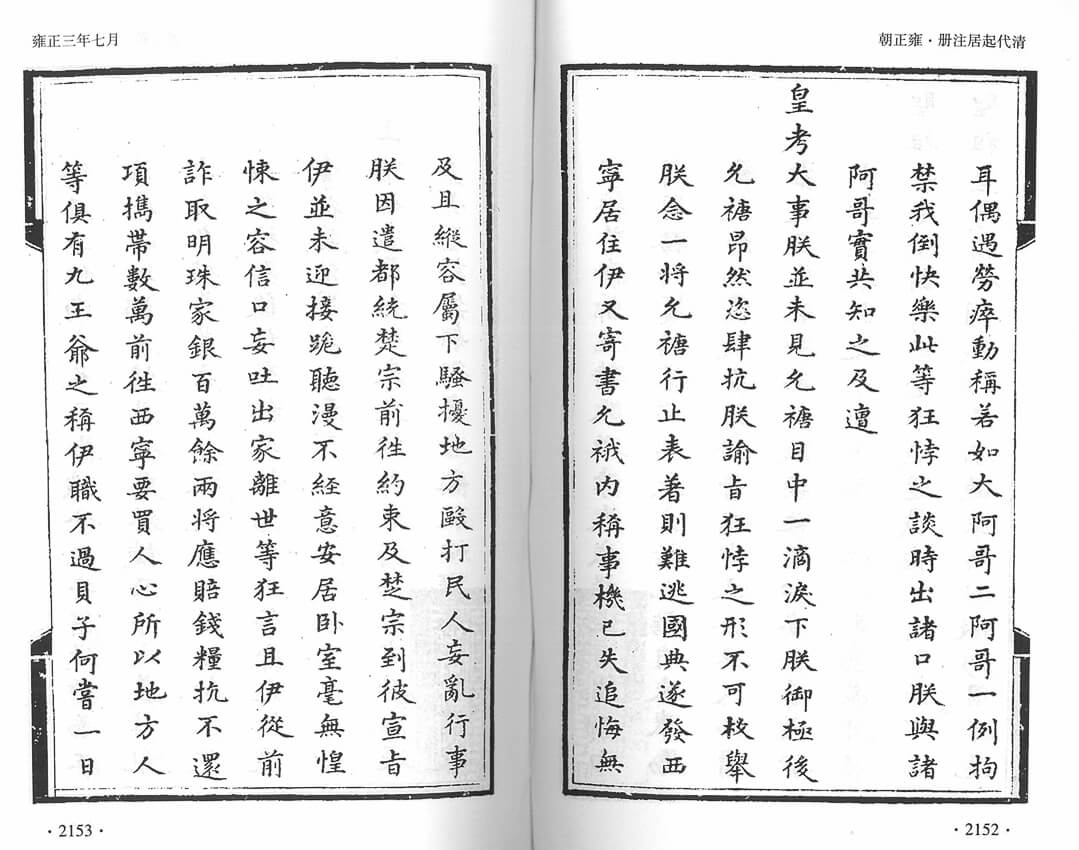 清代起居注册·雍正朝
耳偶遇勞瘁動稱若如大阿哥二阿哥一例拘
禁我倒快樂此等狂悖之談時出諸口朕與諸
阿哥實共知之及邅
皇考大事朕並未見允禟目中一滴淚下朕御極後
允禟昂然恣肆抗朕諭旨狂悖之形不可枚舉
朕念一將允禟行止表著則難逃國典遂發西
寧居住伊又寄書允䄉内稱事機已失追悔無
·2152·
雍正三年七月
及且縱容屬下騷擾地方毆打民人妄亂行事
朕因遣都統楚宗前徃約束及楚宗到彼宣旨
伊並未迎接跪聽漫不経意安居卧室毫無惶
悚之容信口妄吐出家離世等狂言且伊從前
詐取明珠家銀百萬餘兩將應賠錢糧抗不還
項攜帶數萬前徃西寧要買人心所以地方人
等俱有九王爺之稱伊職不過貝子何嘗一日
·2153·